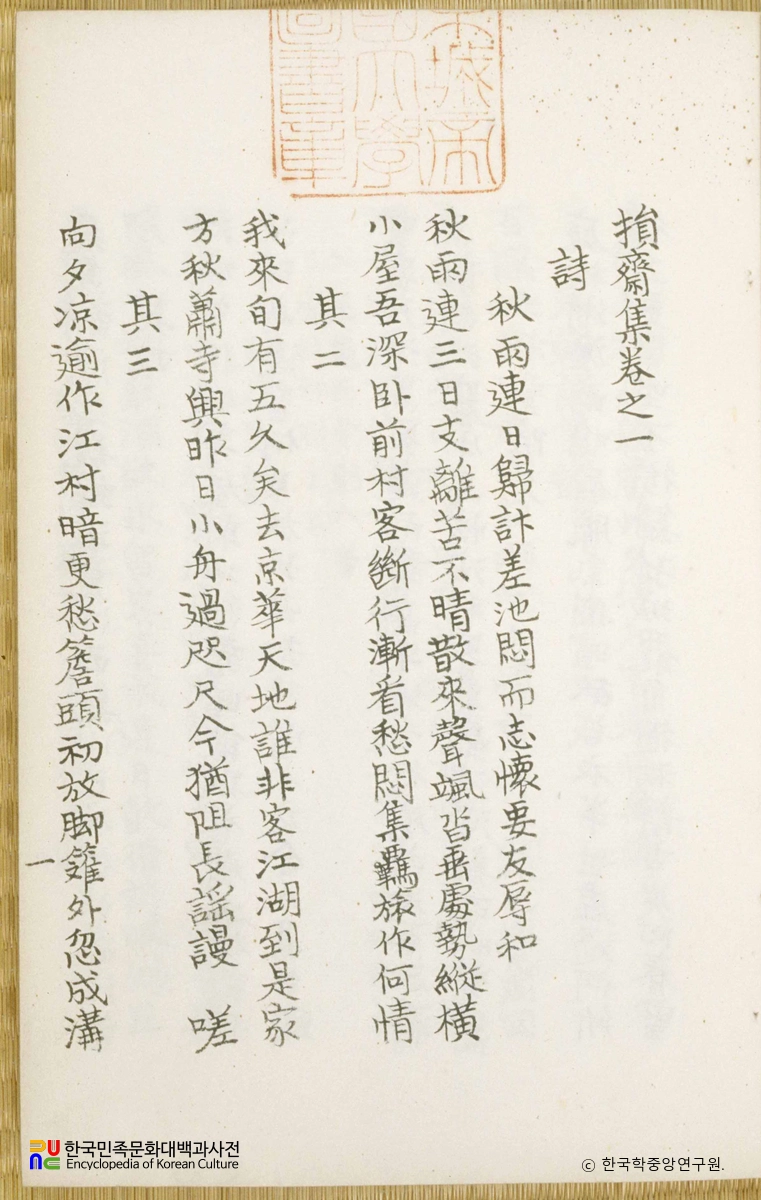 損齋集卷之一
詩
秋雨連日歸計差池悶而志懷要友辱和
秋雨連三日支離苦不晴散來聲颯沓垂處勢縱橫
小屋吾深卧前村客斷行漸看愁悶集羈旅作何情
其二
我來旬有五久矣去京華天地誰非客江湖到是家
方秋蕭寺興昨日小舟過咫尺今猶阻長謠謾 嗟
其三
向夕凉逾作江村暗更愁簷頭初放脚籬外忽成溝
一
한국민족문화대백과사전
Encyclopedia of Korean Culture
© 한국학중앙연구원.